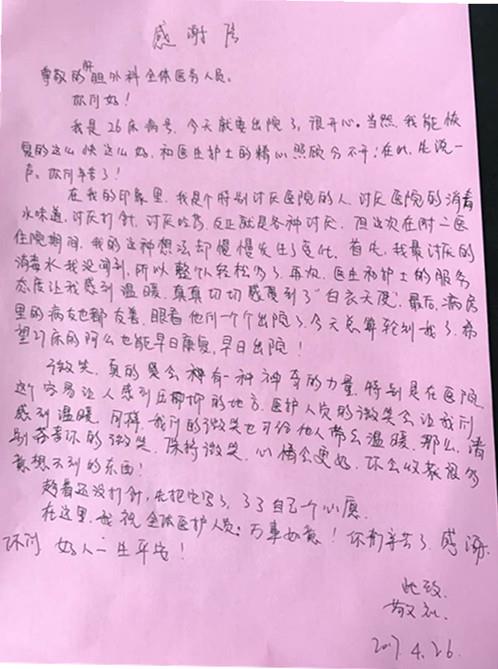 感谢信
尊敬的肝胆外科全体医务人员。
你们好!
我是26床病号,今天就要出院了,很开心。当然,我能恢
复的这么快这么好,和医生护士的精心照顾分不开;在此,先说一
声,你们辛苦了!
在我的印象里,我是个特别讨厌医院的人,讨厌医院的消毒
水味道,讨厌打针,讨厌吃药,反正就是各种讨厌。但这次在附二医
住院期间,我的这种想法却慢慢发生了变化。首先,我最讨厌的
消毒水我没闻到,所以整个人轻松多了。再次,医生和护士的服务
态度让我感到温暖,真真切切感受到了“白衣天使”。最后,病房
里的病友也都友善,眼看他们一个个出院了,今天总算轮到我了,希
望27床的阿公也能早日康复,早日出院!
微笑,真的是会神有一种神奇的力量,特别是在医院
这个容易让人感到压抑的地方,医护人员的微笑会让我们
感到温暖。同样,我们的微笑也可给他人带去温暖。那么,请
别吝啬你的微笑,保持微笑,心情会更好,你会收获很多
意想不到的东西!
趁着还没打针,先把它写了,了了自己一个心愿。
在这里,我祝全体医护人员:万事如意!你们辛苦了,感谢
你们 好人一生平安!
此致
敬礼
2017.4.26.